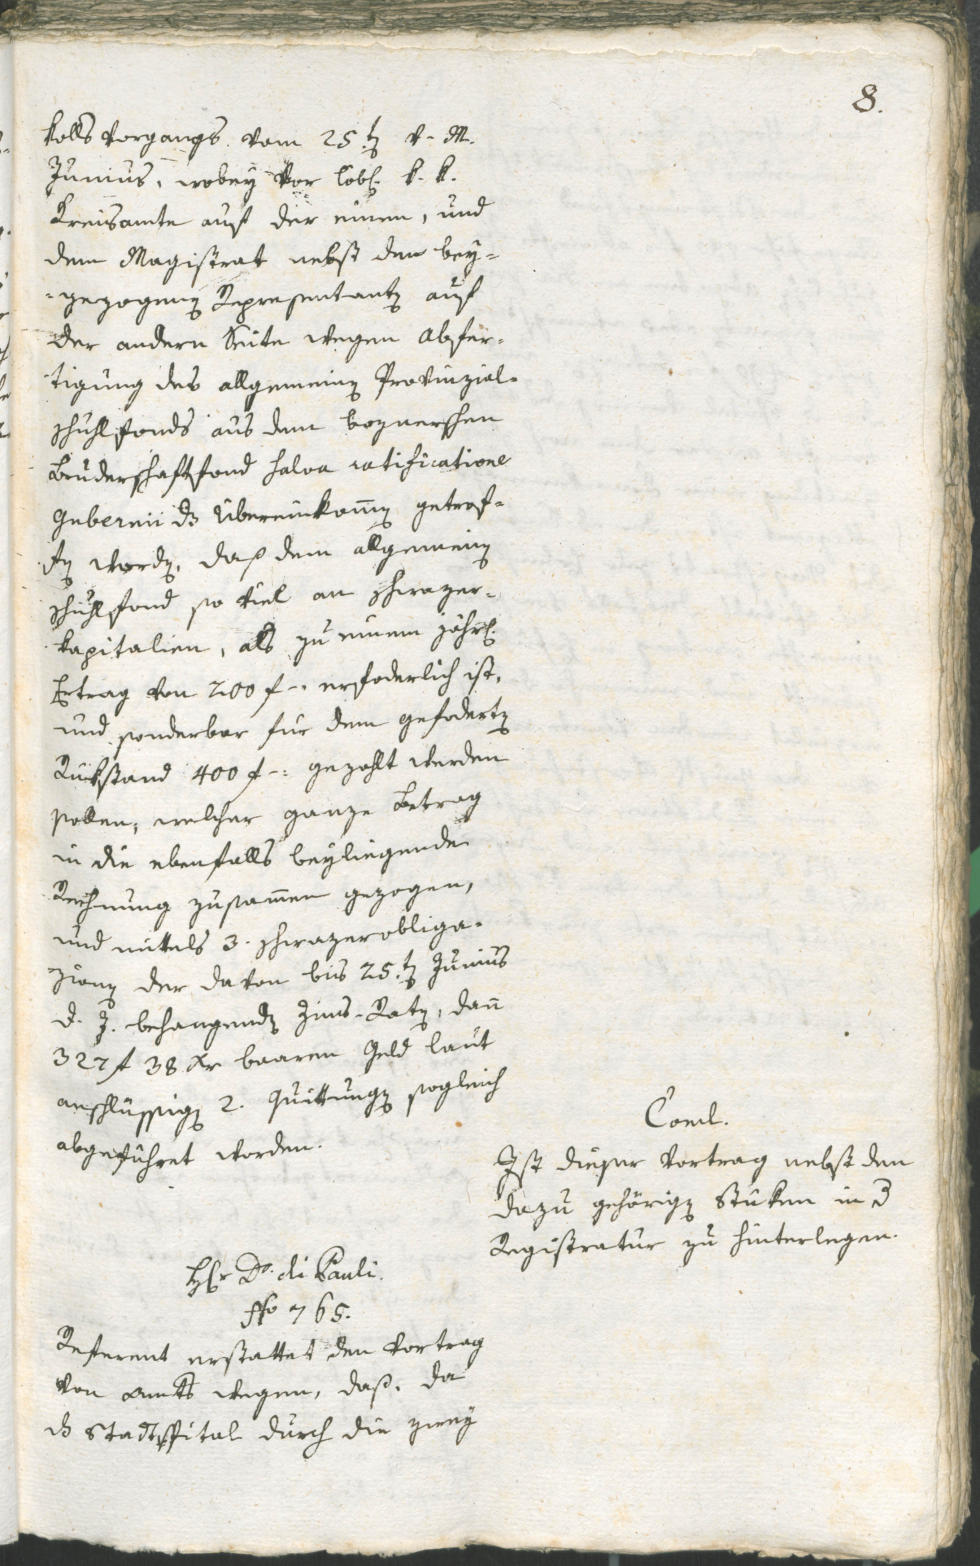 8.
kolls Vorgangs vom 25.ten v. M.
Junius, wobey vor löbl. k. k.
Kreisamte auf der einen, und
dem Magistrat nebst den bey-
-gezogenen Representanten auf
der andern Seite wegen Abfer-
tigung des allgemeinen Provinzial-
schuhlfonds aus dem boznerschen
Bruderschaftsfond salva ratificatione
Gubernii das Übereinkommen getrof-
fen worden, daß dem allgemeinen
schuhlfond so viel an schwazer-
kapitalien, als zu einem jährl.
Ertrag von 200 f -. erfoderlich ist,
und sonderbar für dem gefoderten
Rückstand 400 f -: gezahlt werden
sollen, welcher ganze Betrag
in die ebenfalls beyliegende
Rechnung zusammen gezogen,
und mittels 3. schwazerobliga-
zionen der davon bis 25.ten Junius
d. J. behangenden Zins-Raten, dann
327 f 38 xr baaren Geld laut
anschlüssigen 2. Quittungen sogleich
abgeführet worden.
Concl.
Ist dieser Vortrag nebst den
dazu gehörigen Stücken in der
Registratur zu hinterlegen.
Hr Dr. di Pauli.
Nro 765.
Referent erstattet den Vortrag
von Amts wegen, daß, da
das Stadtspital durch die zwey